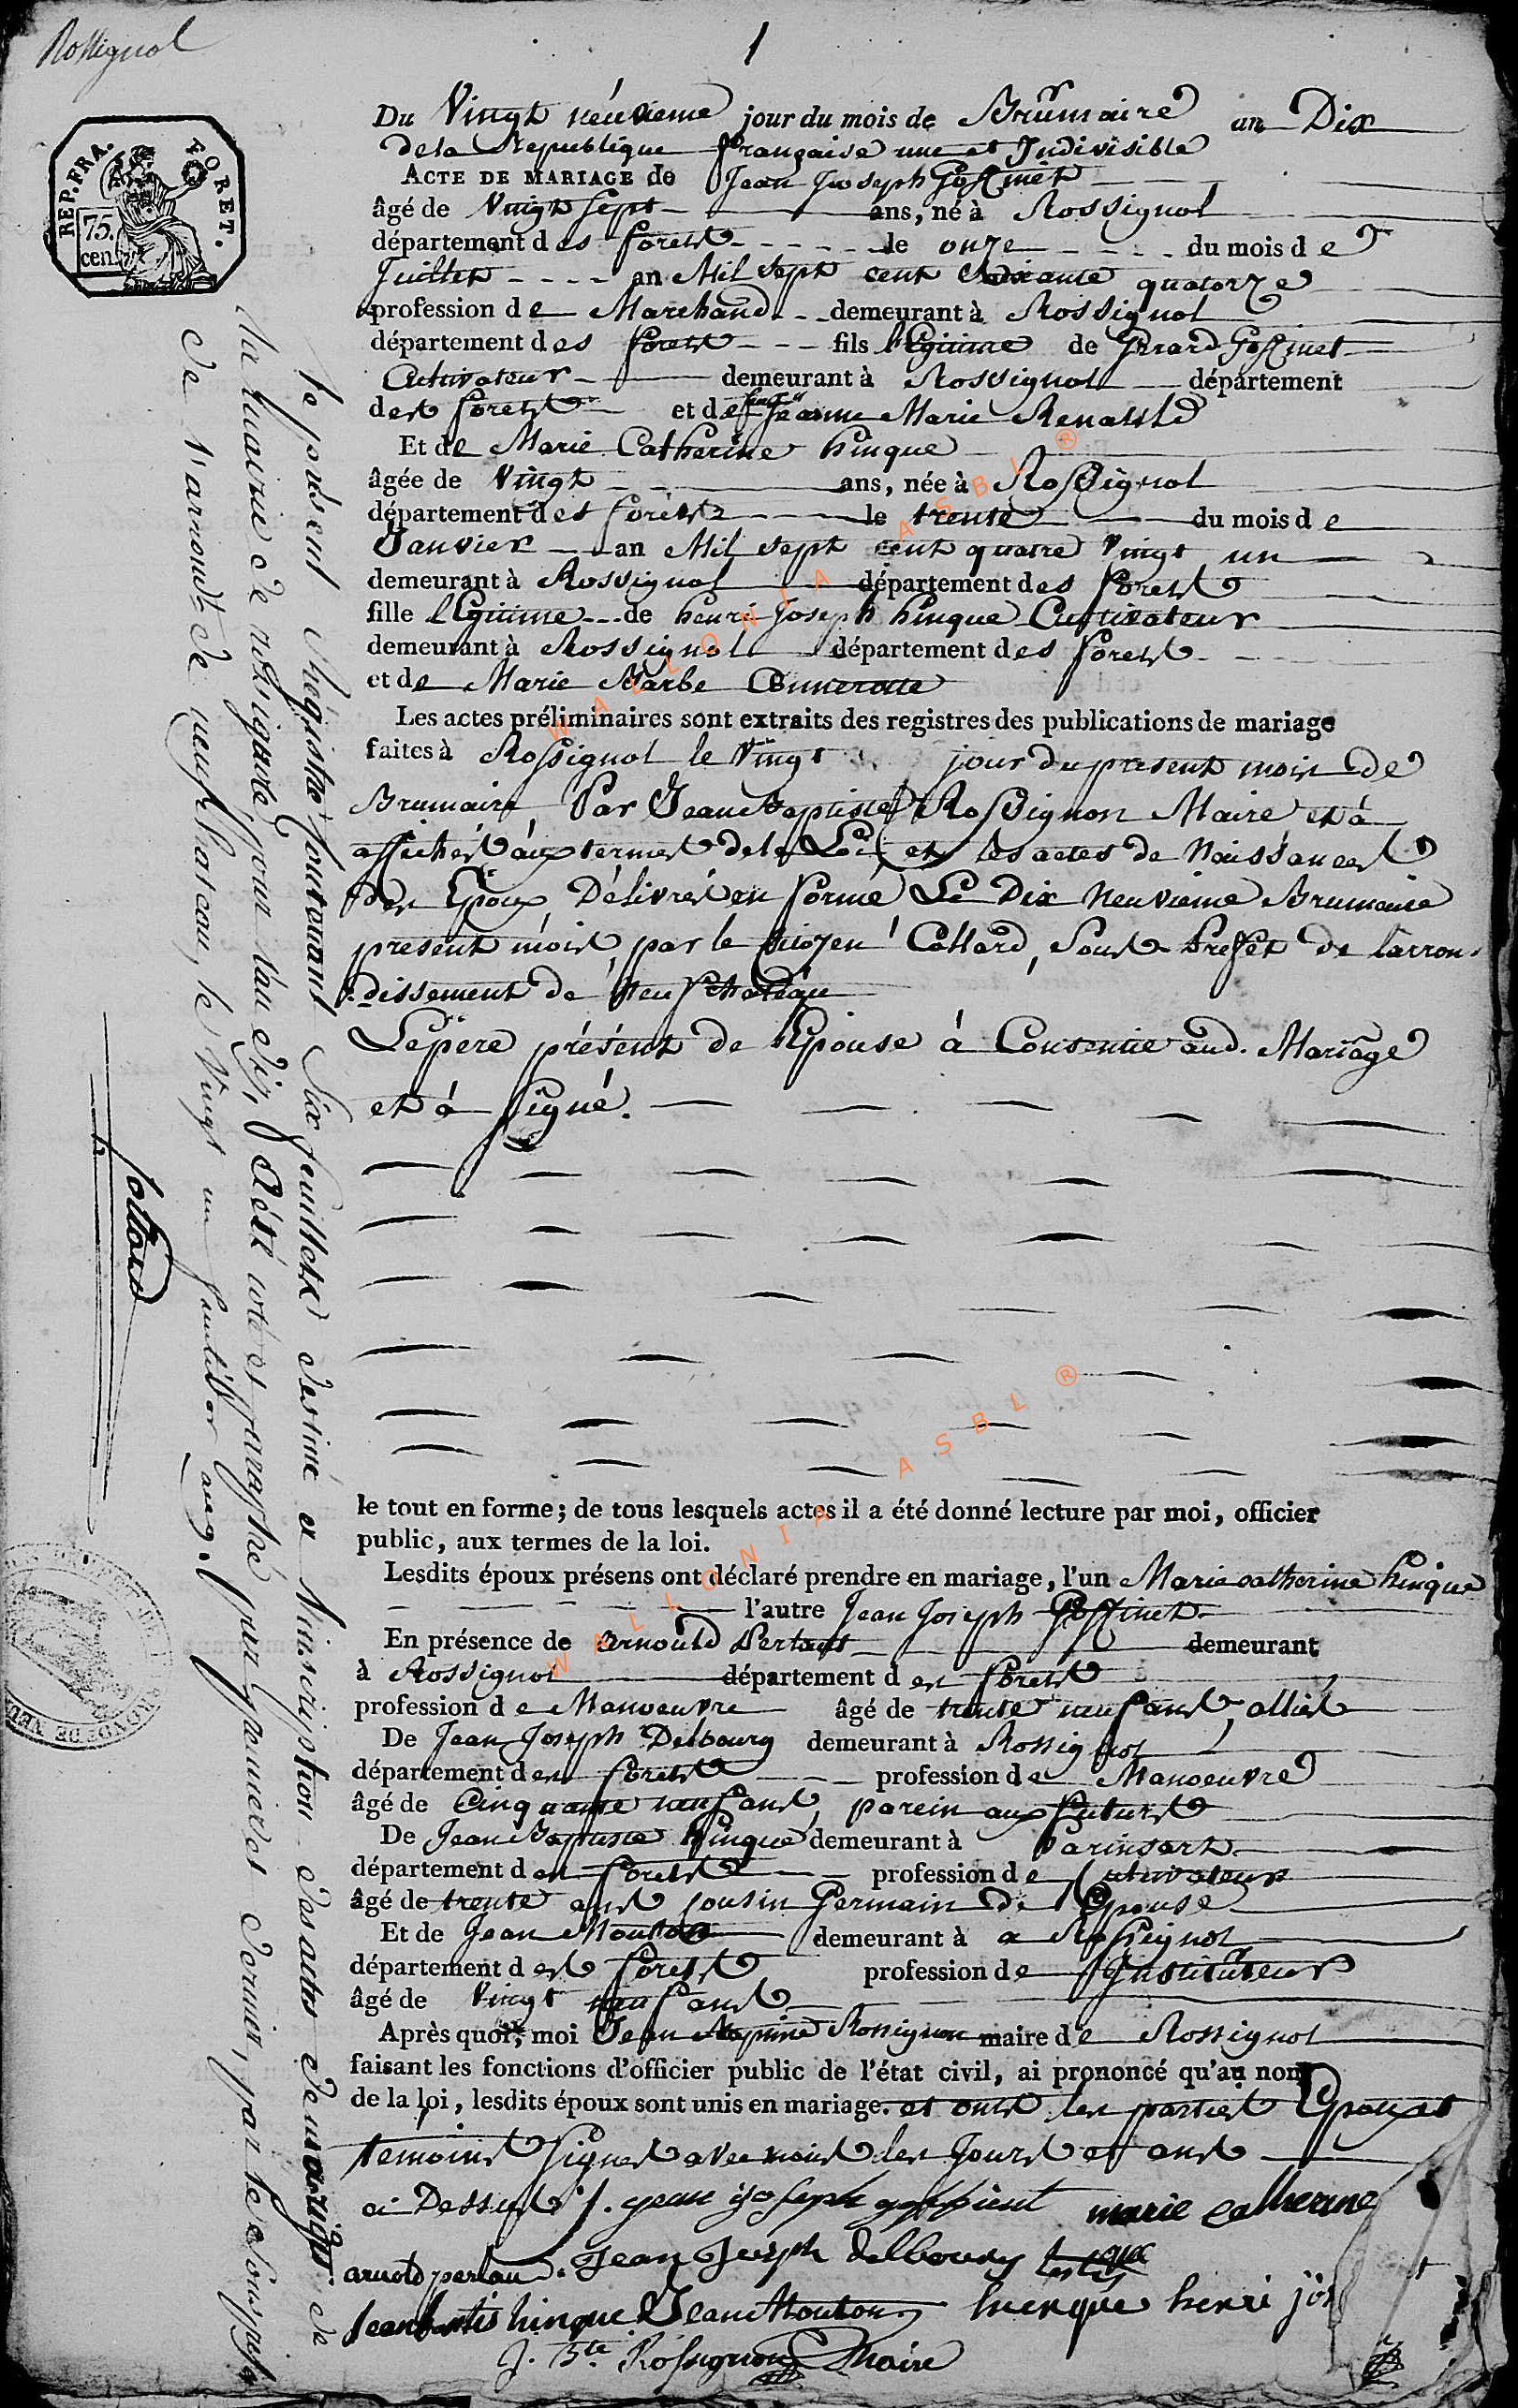 Rossignol
1
REP. FRA.
FORET.
75.
cen.
Du Vingt neuvieme jour du mois de Brumaire an Dix
de la Republique française une et Indivisible
ACTE DE MARIAGE de Jean Joseph Goffinet
âgé de Vingt sept ans, né à Rossignol
département des forets le onze du mois de
Juillet an Mil sept cent soixante quatorze
profession de Marchand demeurant à Rossignol
département des forets fils légitime de Gerard Goffinet
Cultivateur demeurant à Rossignol département
des forets et de feue Jeanne Marie
Et de Marie Catherine hinque
âgée de Vingt ans, née à Rossignol
département des forets le trente du mois de
Janvier an Mil sept cent quatre Vingt un
demeurant à Rossignol département des forets
fille légitime de henri Joseph hinque Cultivateur
demeurant à Rossignol département des forets
et de Marie Barbe
Les actes préliminaires sont extraits des registres des publications de mariage
faites à Rossignol le Vingt jour du present mois de
Brumaire Par Jean Baptiste Rossignon Maire et à
affichés aux termes de la Loi, et les actes de Naissances
des Epoux Délivrés en forme Le Dix Neuvieme Brumaire
present mois, par le citoyen Collard, Sous Prefet de l'arron-
dissement de Neufchateau
Le père présent de l'Epouse à Consentie aud. Mariage
et à signé.
le tout en forme; de tous lesquels actes il a été donné lecture par moi, officier
public, aux termes de la loi.
Lesdits époux présens ont déclaré prendre en mariage, l'un Marie catherine hinque
l'autre Jean Joseph Goffinet
En présence de arnould Perlaus demeurant
à Rossignol département des forets
profession de Manoeuvre âgé de trente neuf ans, alliés
De Jean Joseph Delbourg demeurant à Rossignol
département des forets profession de Manoeuvre
âgé de Cinquante neuf ans, parein aux futurs
De Jean Baptiste hinque demeurant à Harinsart
département des forets profession de Cultivateur
âgé de trente ans cousin Germain de l'Epouse
Et de Jean Mouton demeurant à a Rossignol
département des forets profession de Instituteur
âgé de Vingt neuf ans
Après quoi, moi Jean Baptiste Rossignon maire de Rossignol
faisant les fonctions d'officier public de l'état civil, ai prononcé qu'au nom
de la loi, lesdits époux sont unis en mariage. et ont les parties Epoux et
temoins signés avec nous les Jours et ans
ci Dessus /. jean joseph goffinet marie catherine
arnold perlau. Jean Joseph delbourg
Jean batis hinque Jean Mouton huenque henri jos
J. Bte. Rossignon Maire
le présent Régistre contenant Six feuillets destiné a l'inscription des actes de mariage de
la mairie de rossignol, pour l'an dix, a été coté et paraphé par premier et dernier, par le sous prefet
de l'arrondt. de neufchateau, le Vingt un fructidor an 9.
Collard
WALLONIA ASBL ®
WALLONIA ASBL ®